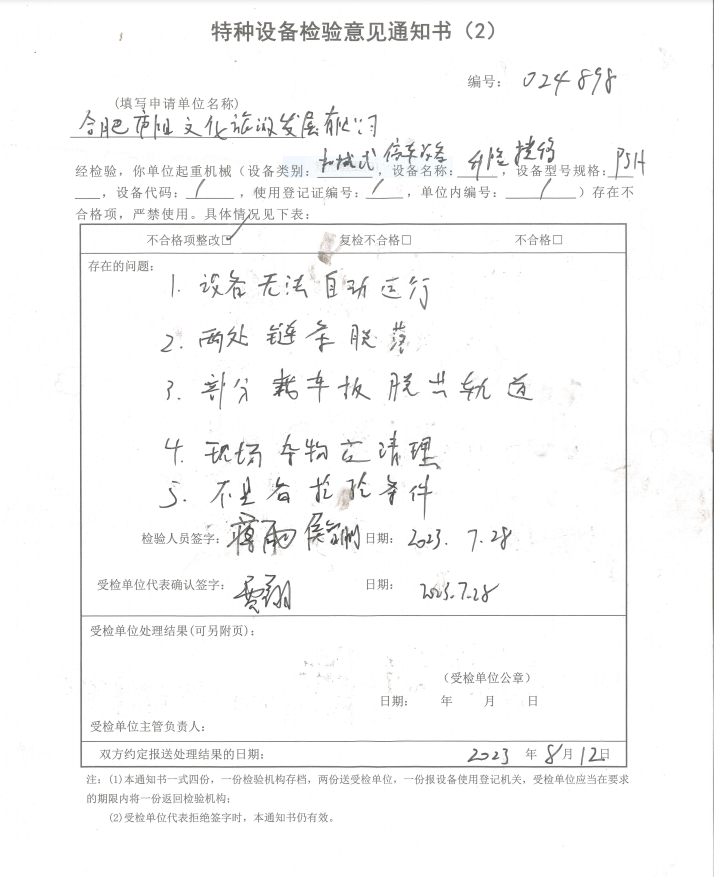 特种设备检验意见通知书（2）
编号： 024898
(填写申请单位名称)
合肥市 文化旅游发展有限公司
经检验，你单位起重机械（设备类别：机械式停车设备，设备名称：升降横移，设备型号规格：PSH
，设备代码： / ，使用登记证编号： / ，单位内编号： / ）存在不
合格项，严禁使用。具体情况见下表：
不合格项整改☑ 复检不合格□ 不合格□
存在的问题：
1. 设备无法自动运行
2. 两处链条脱落
3. 部分载车板脱出轨道
4. 现场杂物应清理
5. 不具备检验条件
检验人员签字： 日期： 2023. 7.28
受检单位代表确认签字： 贾翔 日期： 2023.7.28
受检单位处理结果(可另附页)：
（受检单位公章）
日期： 年 月 日
受检单位主管负责人：
双方约定报送处理结果的日期： 2023 年 8 月 12 日
注：(1)本通知书一式四份，一份检验机构存档，两份送受检单位，一份报设备使用登记机关，受检单位应当在要求
的期限内将一份返回检验机构；
(2)受检单位代表拒绝签字时，本通知书仍有效。